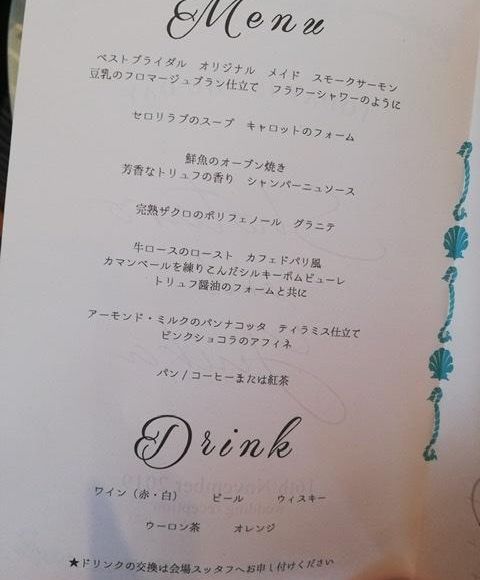 Menu
ベストブライダル オリジナル メイド スモークサーモン
豆乳のフロマージュブラン仕立て フラワーシャワーのように
セロリラブのスープ キャロットのフォーム
鮮魚のオーブン焼き
芳香なトリュフの香り シャンパーニュソース
完熟ザクロのポリフェノール グラニテ
牛ロースのロースト カフェドパリ風
カマンベールを練りこんだシルキーポムピューレ
トリュフ醤油のフォームと共に
アーモンド・ミルクのパンナコッタ ティラミス仕立て
ピンクショコラのアフィネ
パン / コーヒーまたは紅茶
Drink
ワイン（赤・白） ビール ウィスキー
ウーロン茶 オレンジ
★ドリンクの交換は会場スッタフへお申し付けください